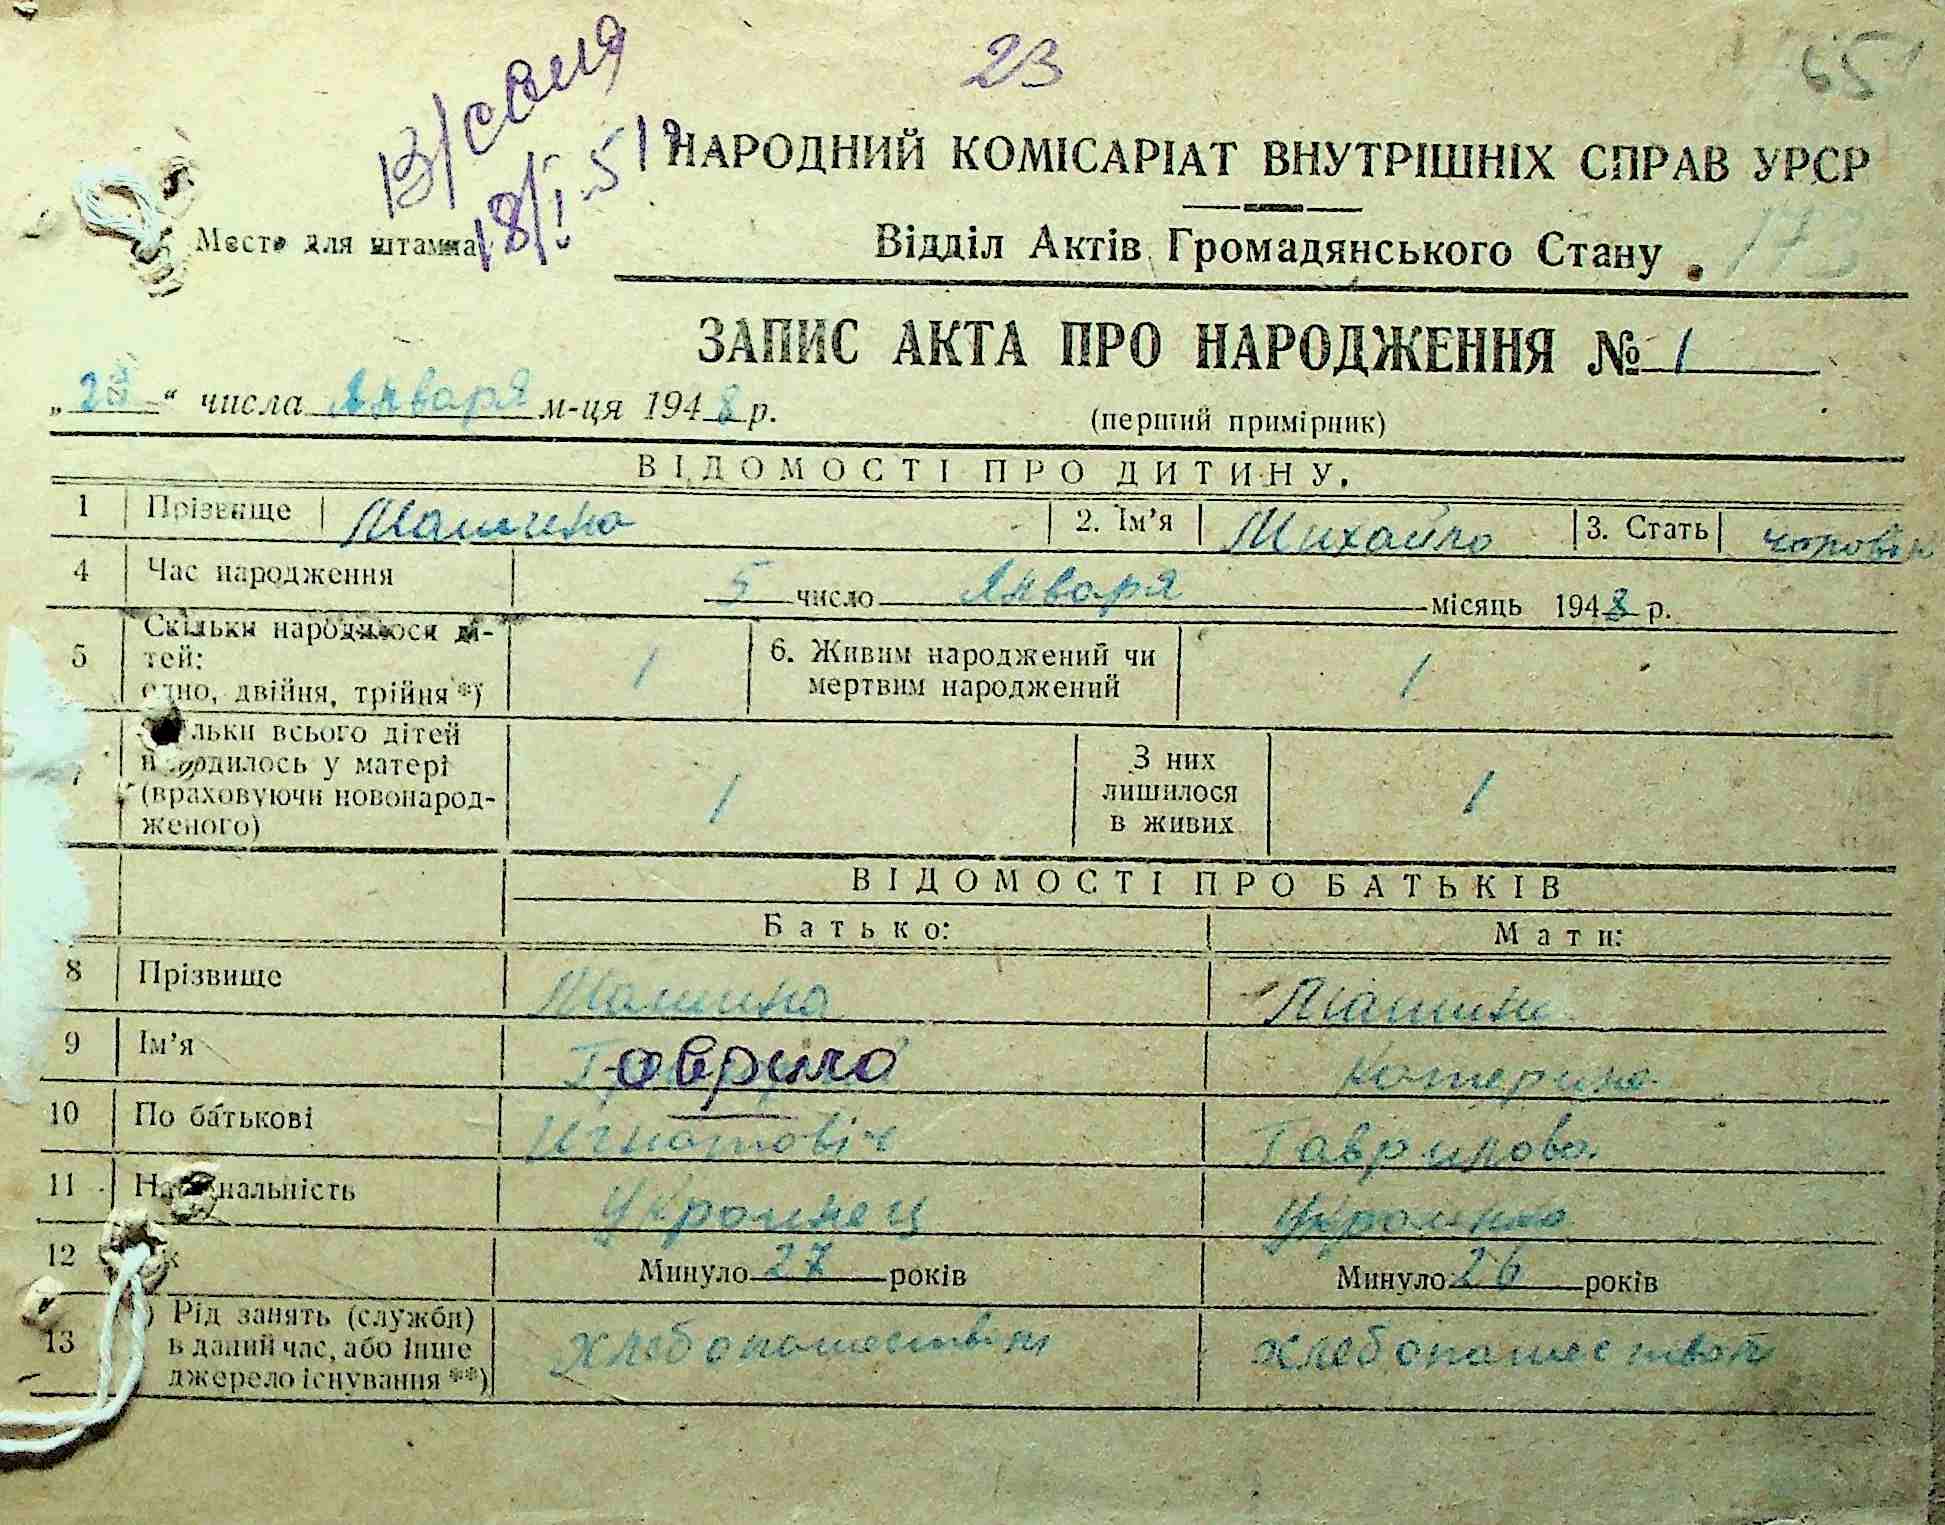 23
65
18/I.51
НАРОДНИЙ КОМІСАРІАТ ВНУТРІШНІХ СПРАВ УРСР
Место для штампа
Відділ Актів Громадянського Стану
173
ЗАПИС АКТА ПРО НАРОДЖЕННЯ № 1
„ “ числа Января м-ця 1948 р.
(перший примірник)
ВІДОМОСТІ ПРО ДИТИНУ.
1 Прізвище Машина 2. Ім'я Михайло 3. Стать
4 Час народження 5 число Января місяць 1948 р.
5 Скільки народилося ді-
тей:
одно, двійня, трійня *) 1 6. Живим народжений чи
мертвим народжений 1
7 льки всього дітей
н родилось у матері
(враховуючи новонарод-
женого) 1 З них
лишилося
в живих 1
ВІДОМОСТІ ПРО БАТЬКІВ
Батько: Мати:
8 Прізвище Машина Машина
9 Ім'я Гаврило Катерина
10 По батькові Игнатовіч Гаврилова
11 На нальність Украинец Украинка
12 к Минуло 27 років Минуло 26 років
13 ) Рід занять (служби)
в даний час, або інше
джерело існування **)